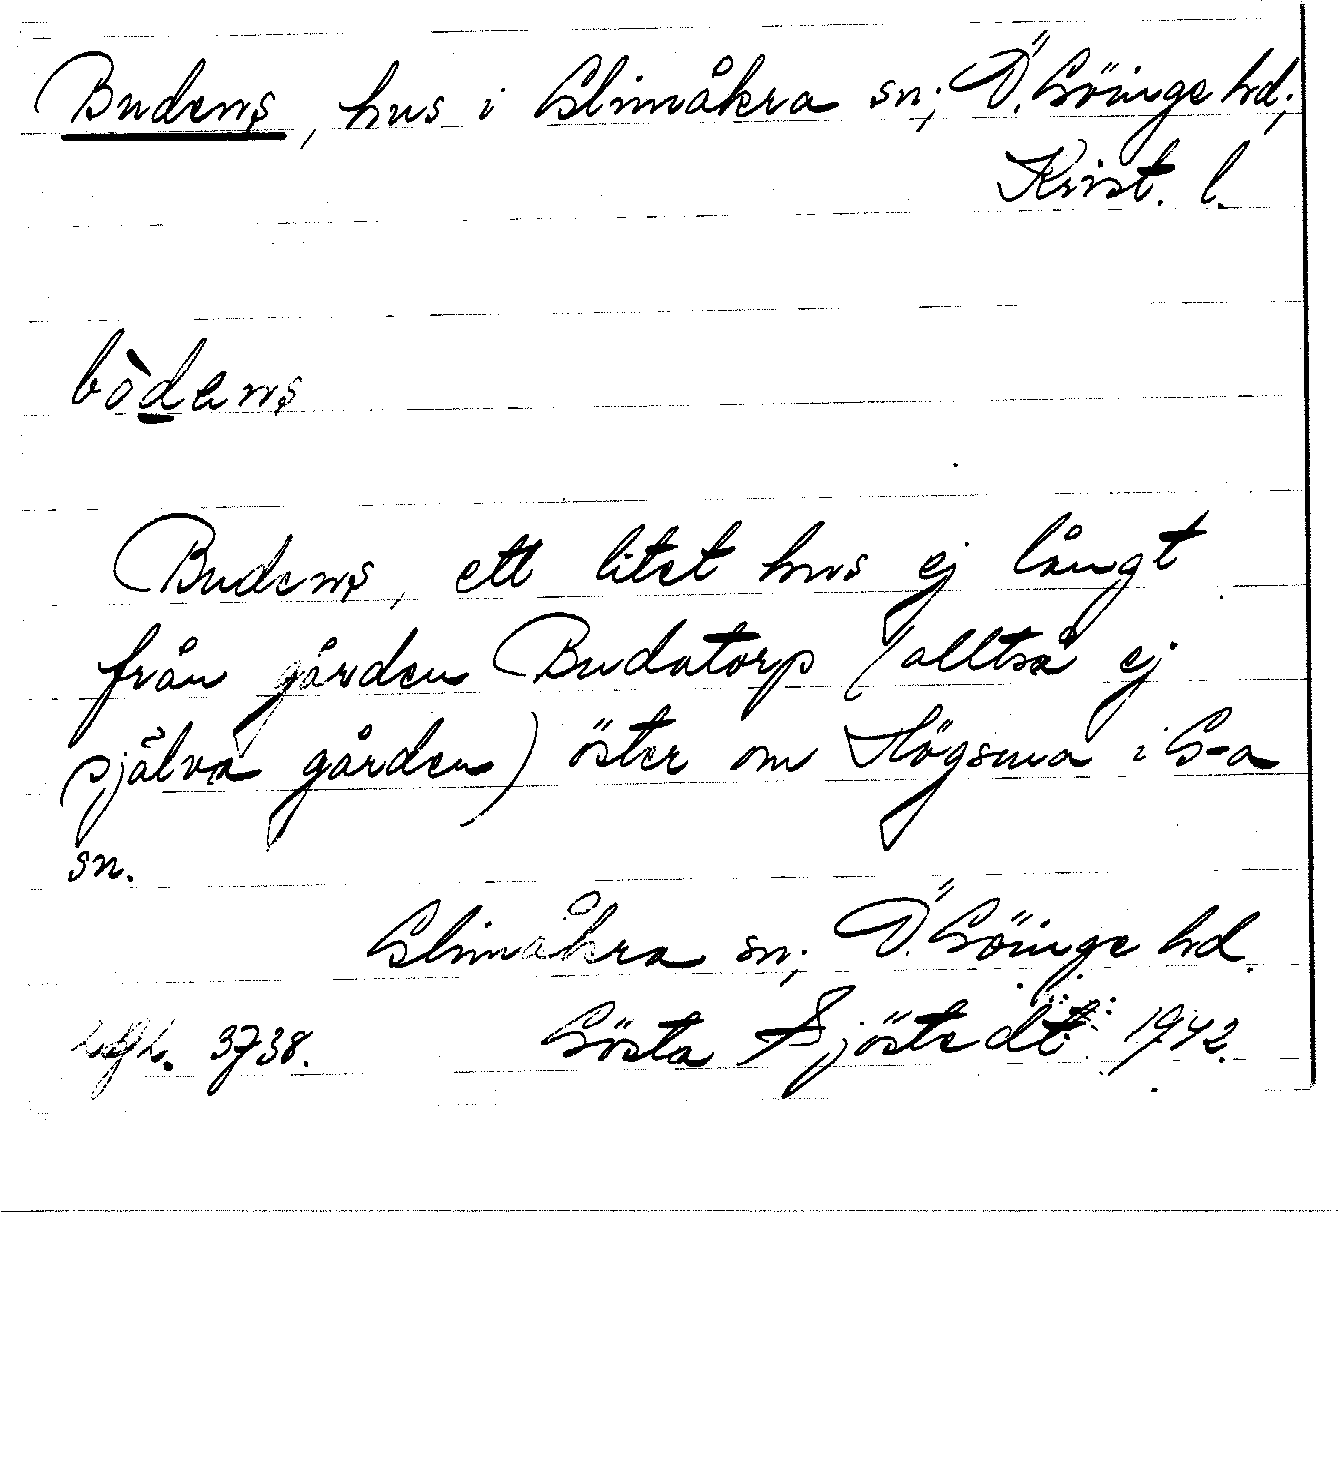 Budens, hus i Glimåkra sn; Ö. Göinge hd;
Krist. l.
bòdens
Budens, ett litet hus ej långt
från gården Budatorp (alltså ej
själva gården) öster om Högsma i G-a
sn.
Glimåkra sn; Ö. Göinge hd.
3738. Gösta Sjöstedt 1942.